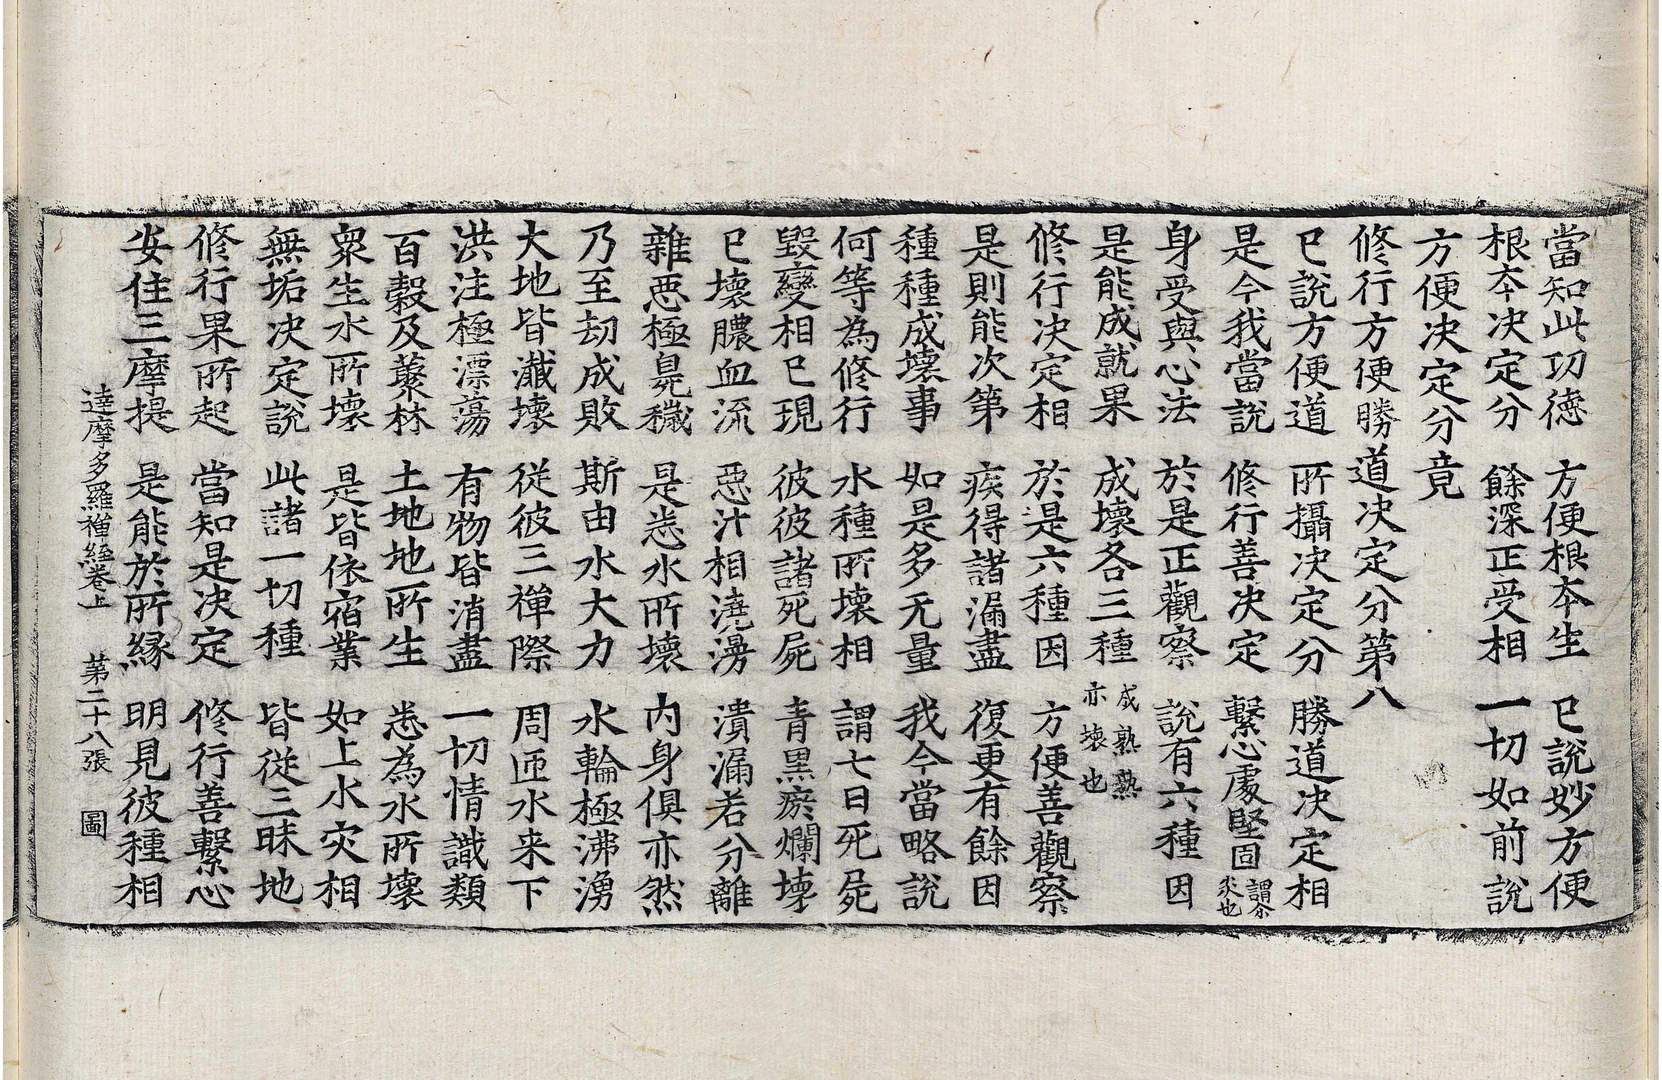 當知此功德　方便根本生　已說妙方便
根本决定分　餘深正受相　一切如前說
方便决定分竟
修行方便勝道决定分第八
已說方便道　所攝决定分　勝道决定相
是今我當說　修行善决定　繫心處堅固
身受與心法　於是正觀察　說有六種因
是能成就果　成壞各三種　成熟熟亦壞也
修行决定相　於是六種因　方便善觀察
是則能次第　疾得諸漏盡　復更有餘因
種種成壞事　如是多无量　我今當略說
何等為修行　水種所壞相　謂七日死屍
毀變相已現　彼彼諸死屍　青黑瘀爛壞
已壞膿血流　惡汁相澆湯　潰漏若分離
雜惡極臭穢　是悉水所壞　內身俱亦然
乃至劫成敗　斯由水大力　水輪極沸湧
大地皆瀸壞　從彼三禪際　周匝水来下
洪注極漂蕩　有物皆消盡　一切情識類
百穀及藂林　土地地所生　悉為水所壞
衆生水所壞　是皆依宿業　如上水灾相
無垢决定說　此諸一切種　皆從三昧地
修行果所起　當知是决定　修行善繫心
安住三摩提　是能於所緣　明見彼種相
達摩多羅禪經卷上　第二十八張　圖